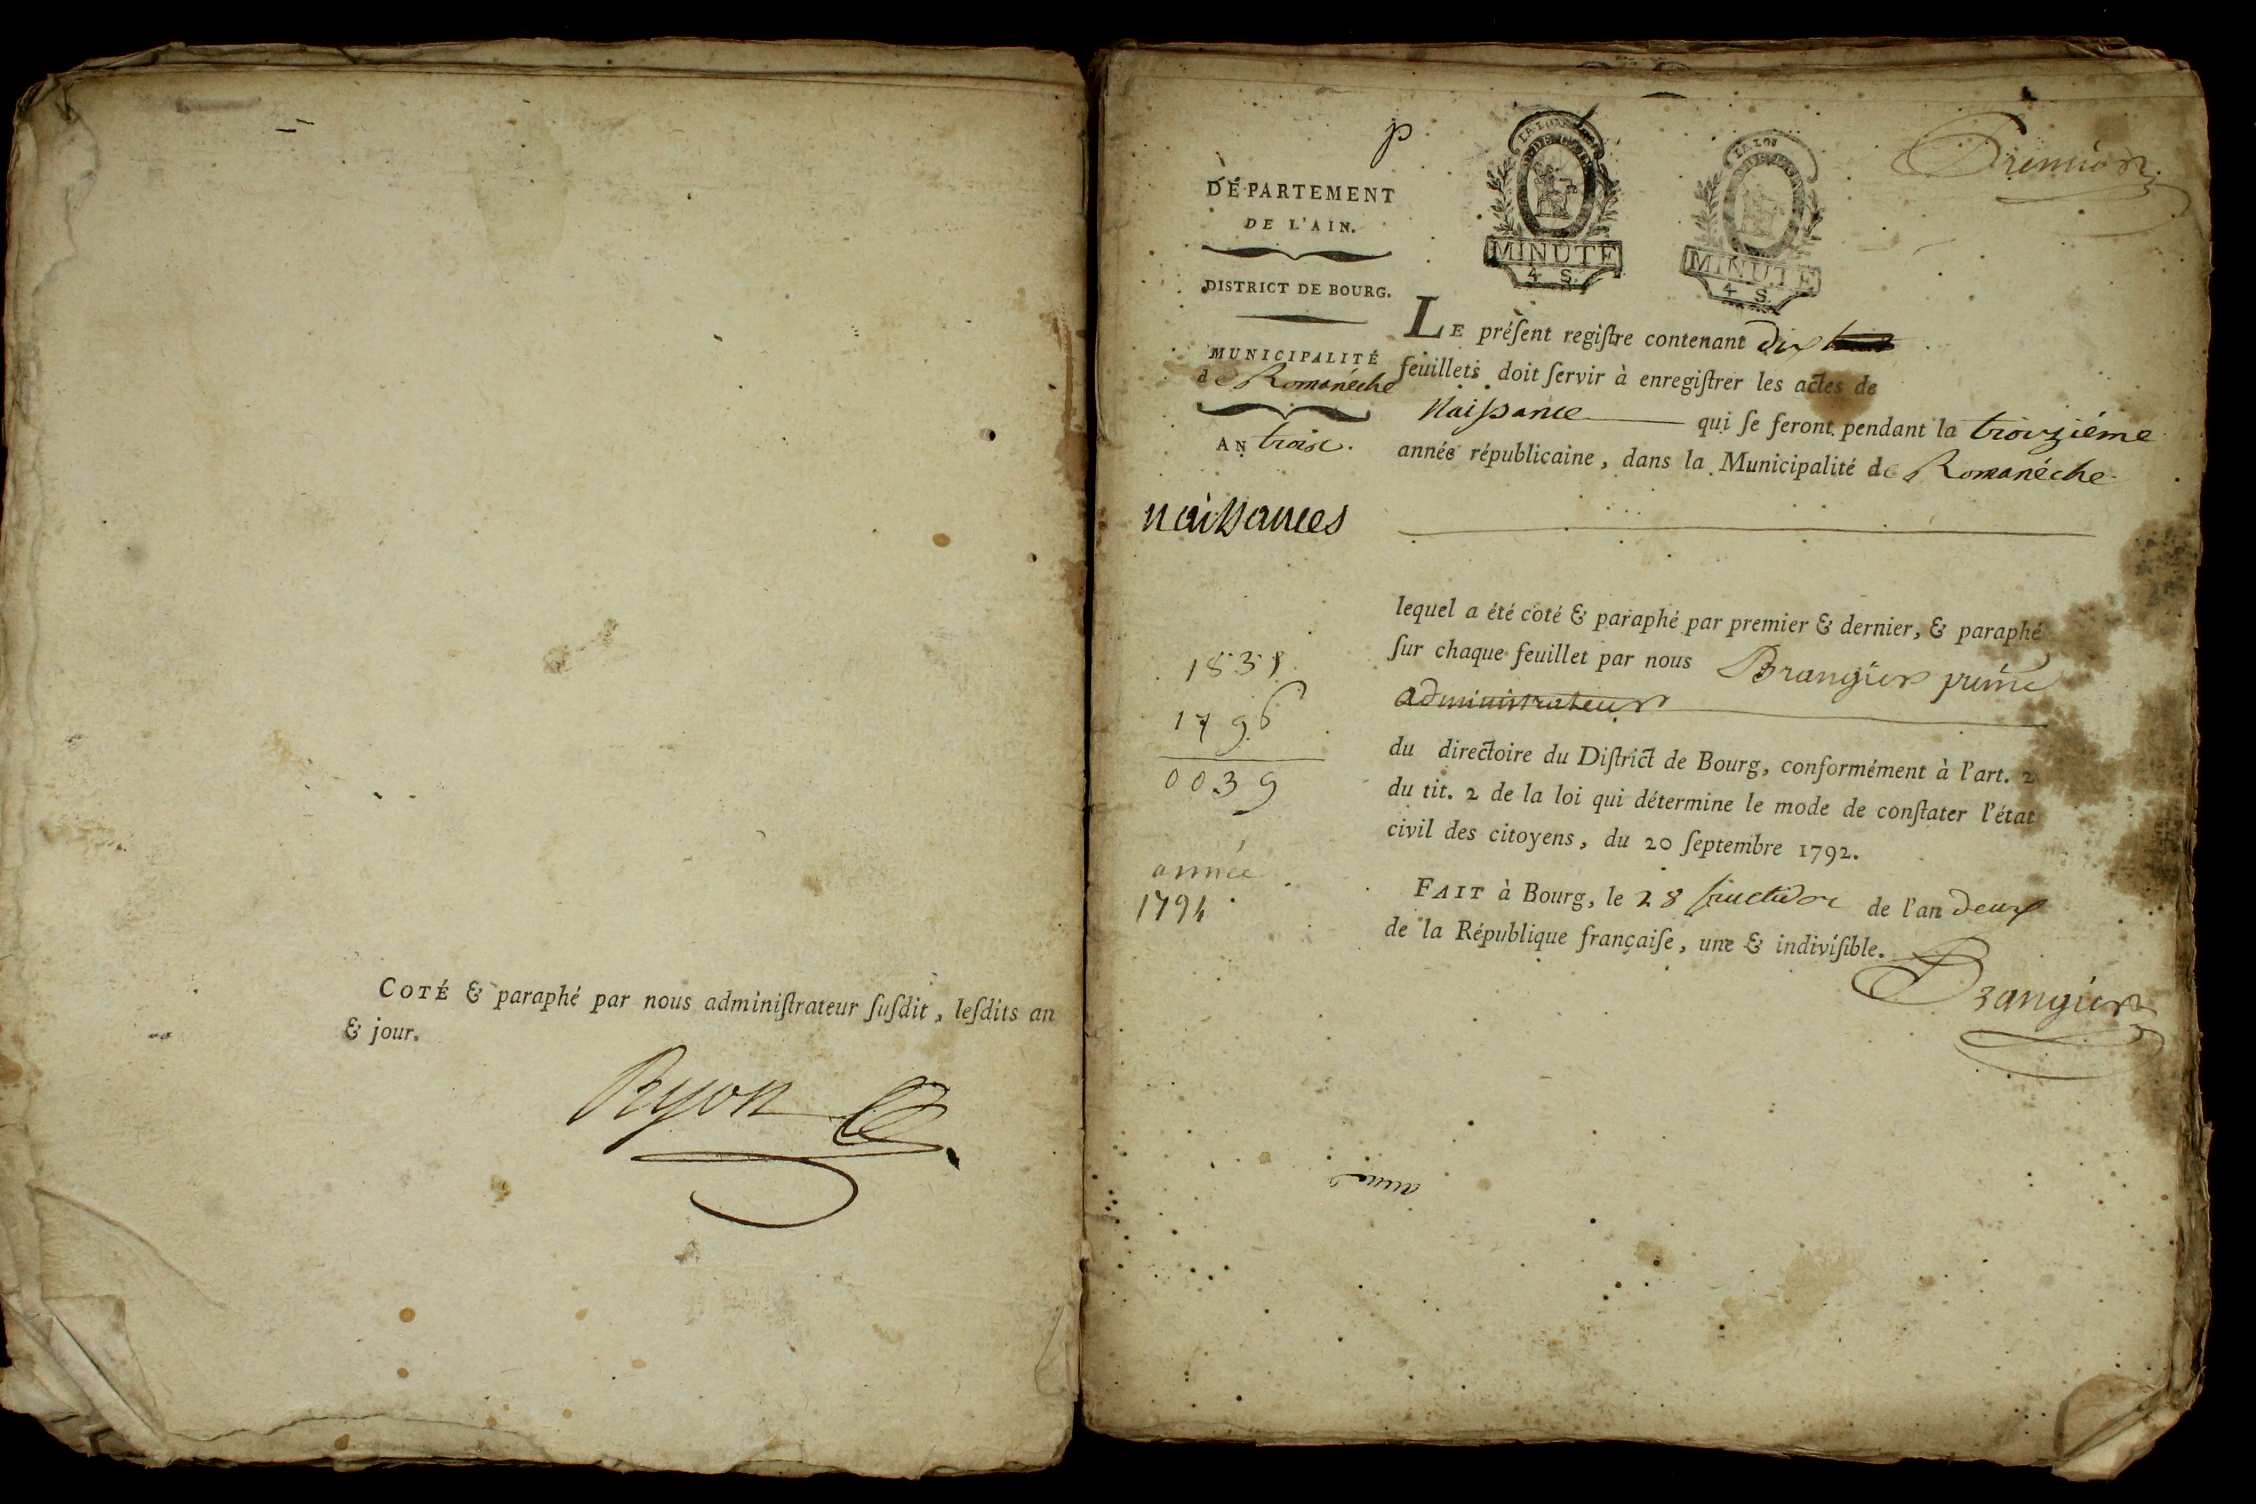 COTÉ & paraphé par nous adminiſtrateur ſuſdit, leſdits an
& jour.
Ryon
p
Premier
LA LOI
LA LOI
MINUTE
4 S.
MINUTE
4 S.
DÉPARTEMENT
DE L'AIN.
DISTRICT DE BOURG.
MUNICIPALITÉ
de Romanéche
AN troix.
naissances
1835
1796
0039
année
1794
LE préſent regiſtre contenant dix
feuillets doit ſervir à enregiſtrer les actes de
Naissance qui ſe feront pendant la troiziéme
année républicaine, dans la Municipalité de Romanéche
lequel a été coté & paraphé par premier & dernier, & paraphé
ſur chaque feuillet par nous Brangier
administrateur
du directoire du Diſtrict de Bourg, conformément à l'art. 2
du tit. 2 de la loi qui détermine le mode de conſtater l'état
civil des citoyens, du 20 ſeptembre 1792.
FAIT à Bourg, le 28 fructidor de l'an deux
de la République françaiſe, une & indiviſible.
Brangier